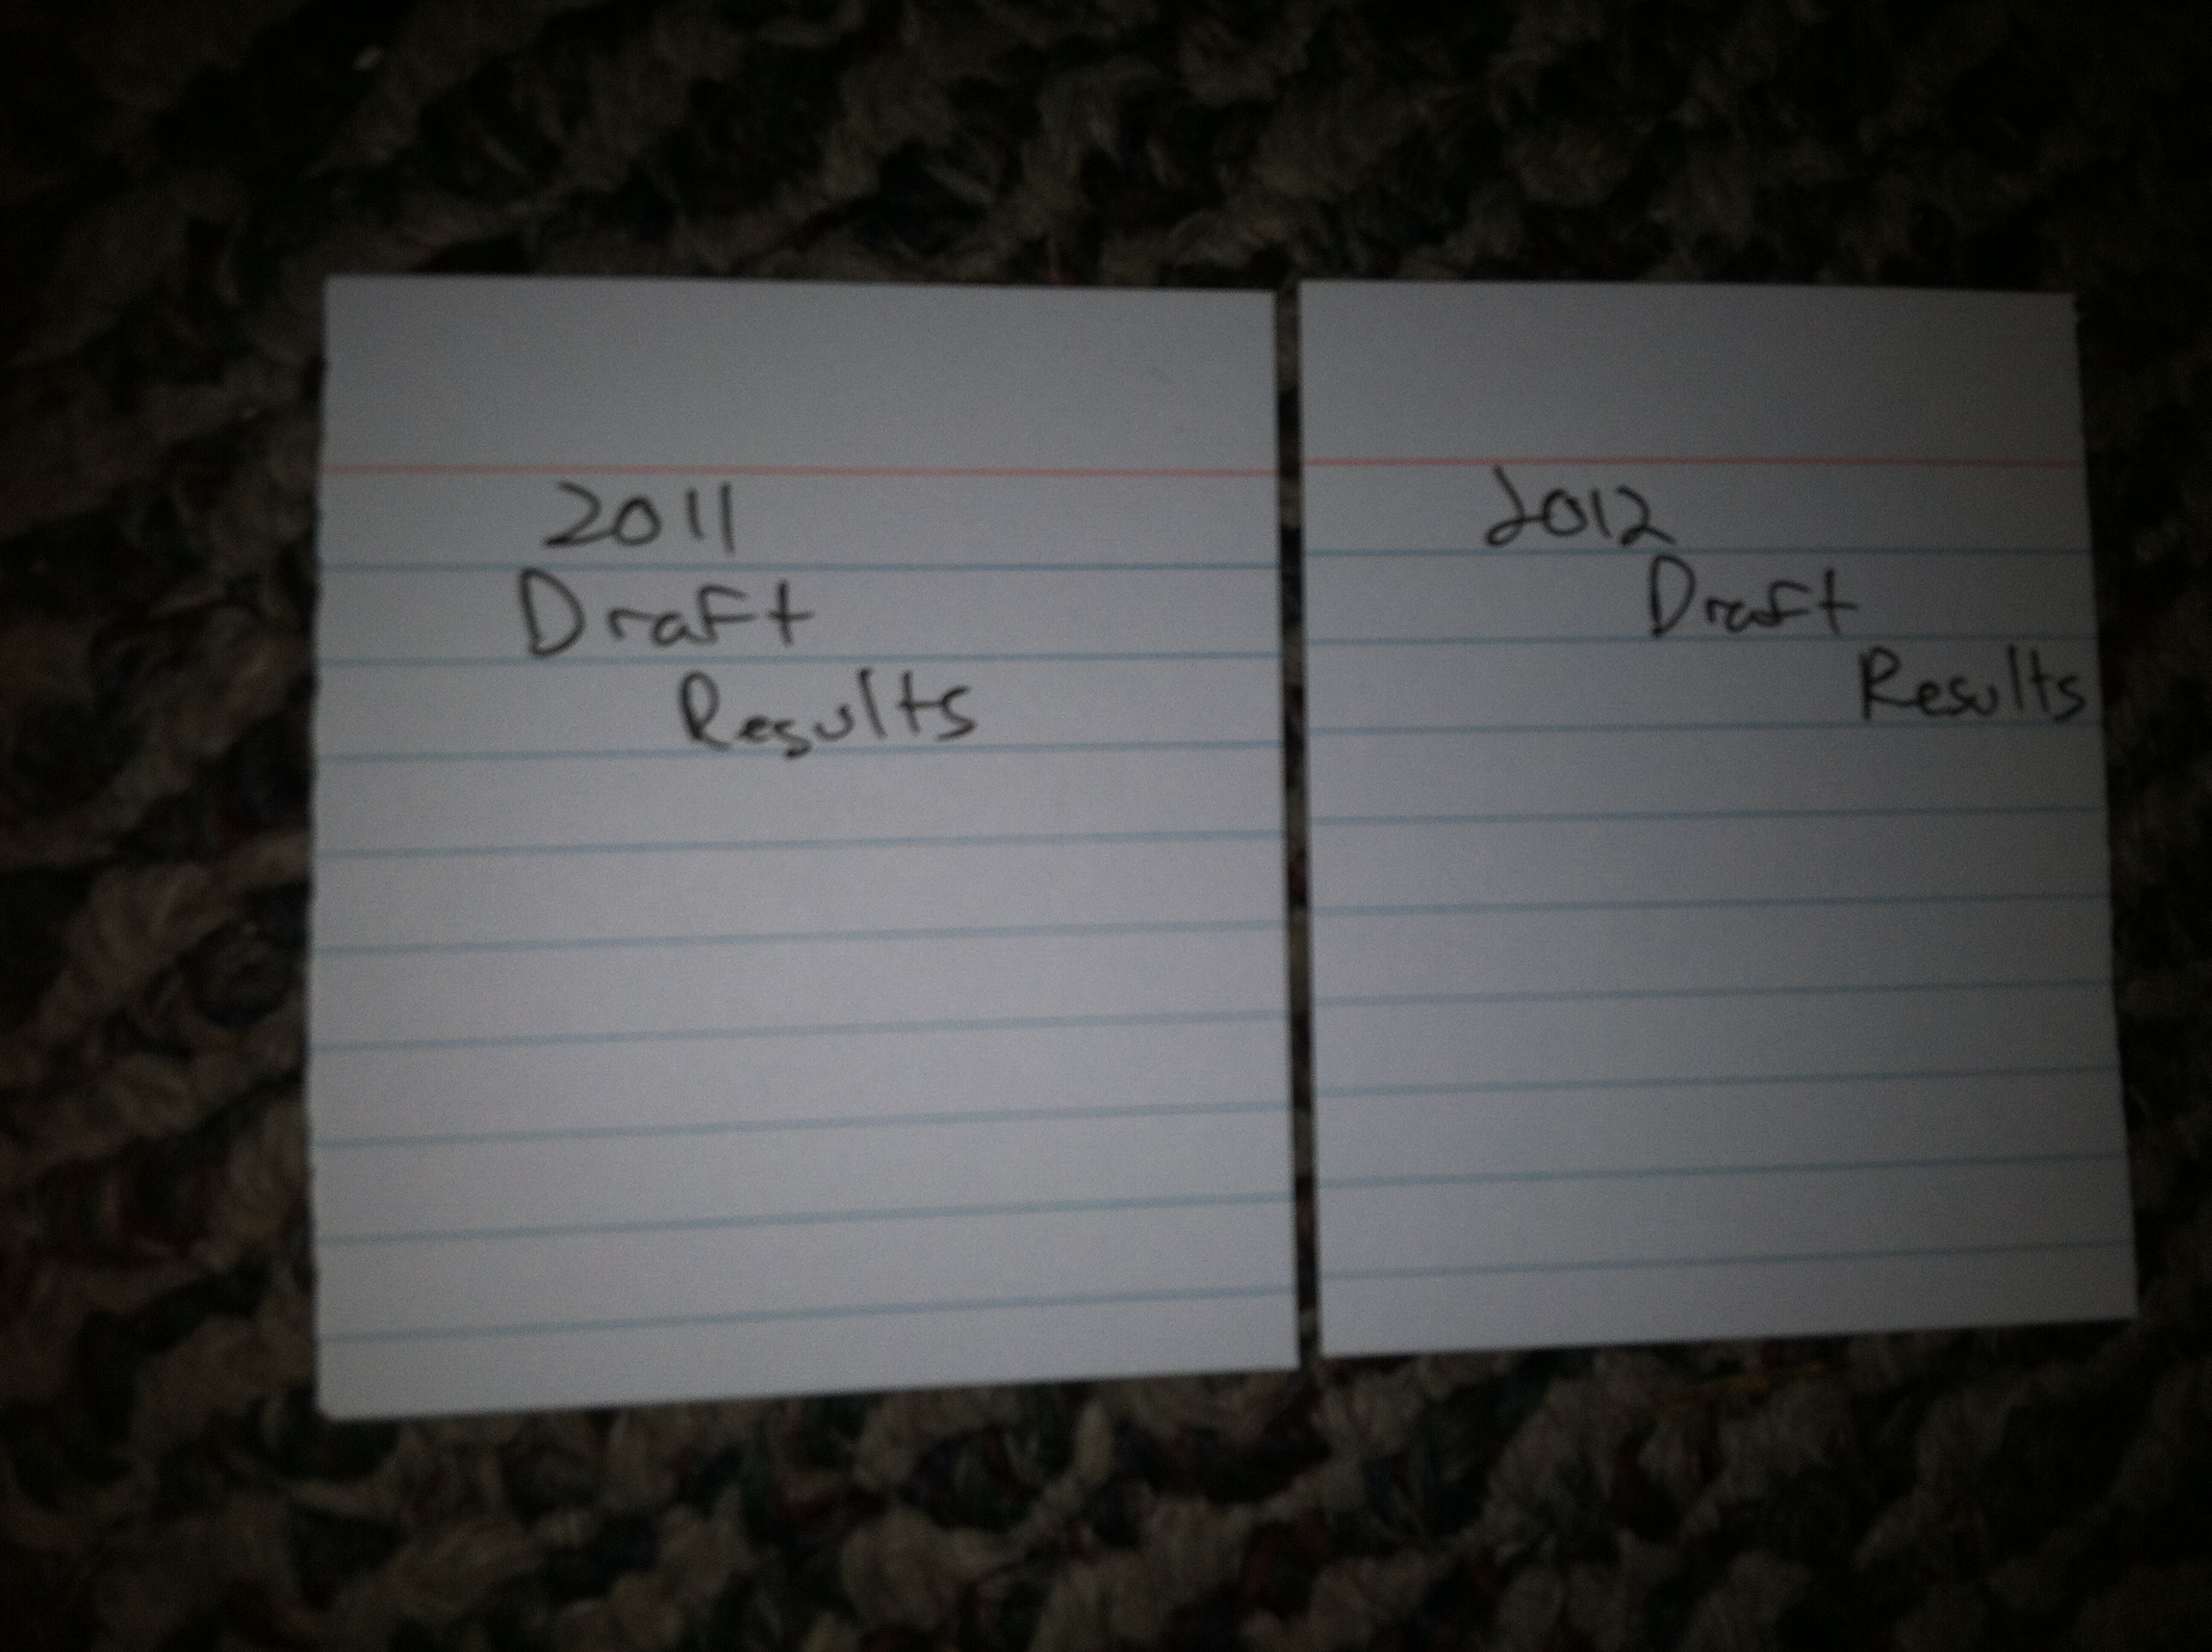 2011
Draft
Results
2012
Draft
Results